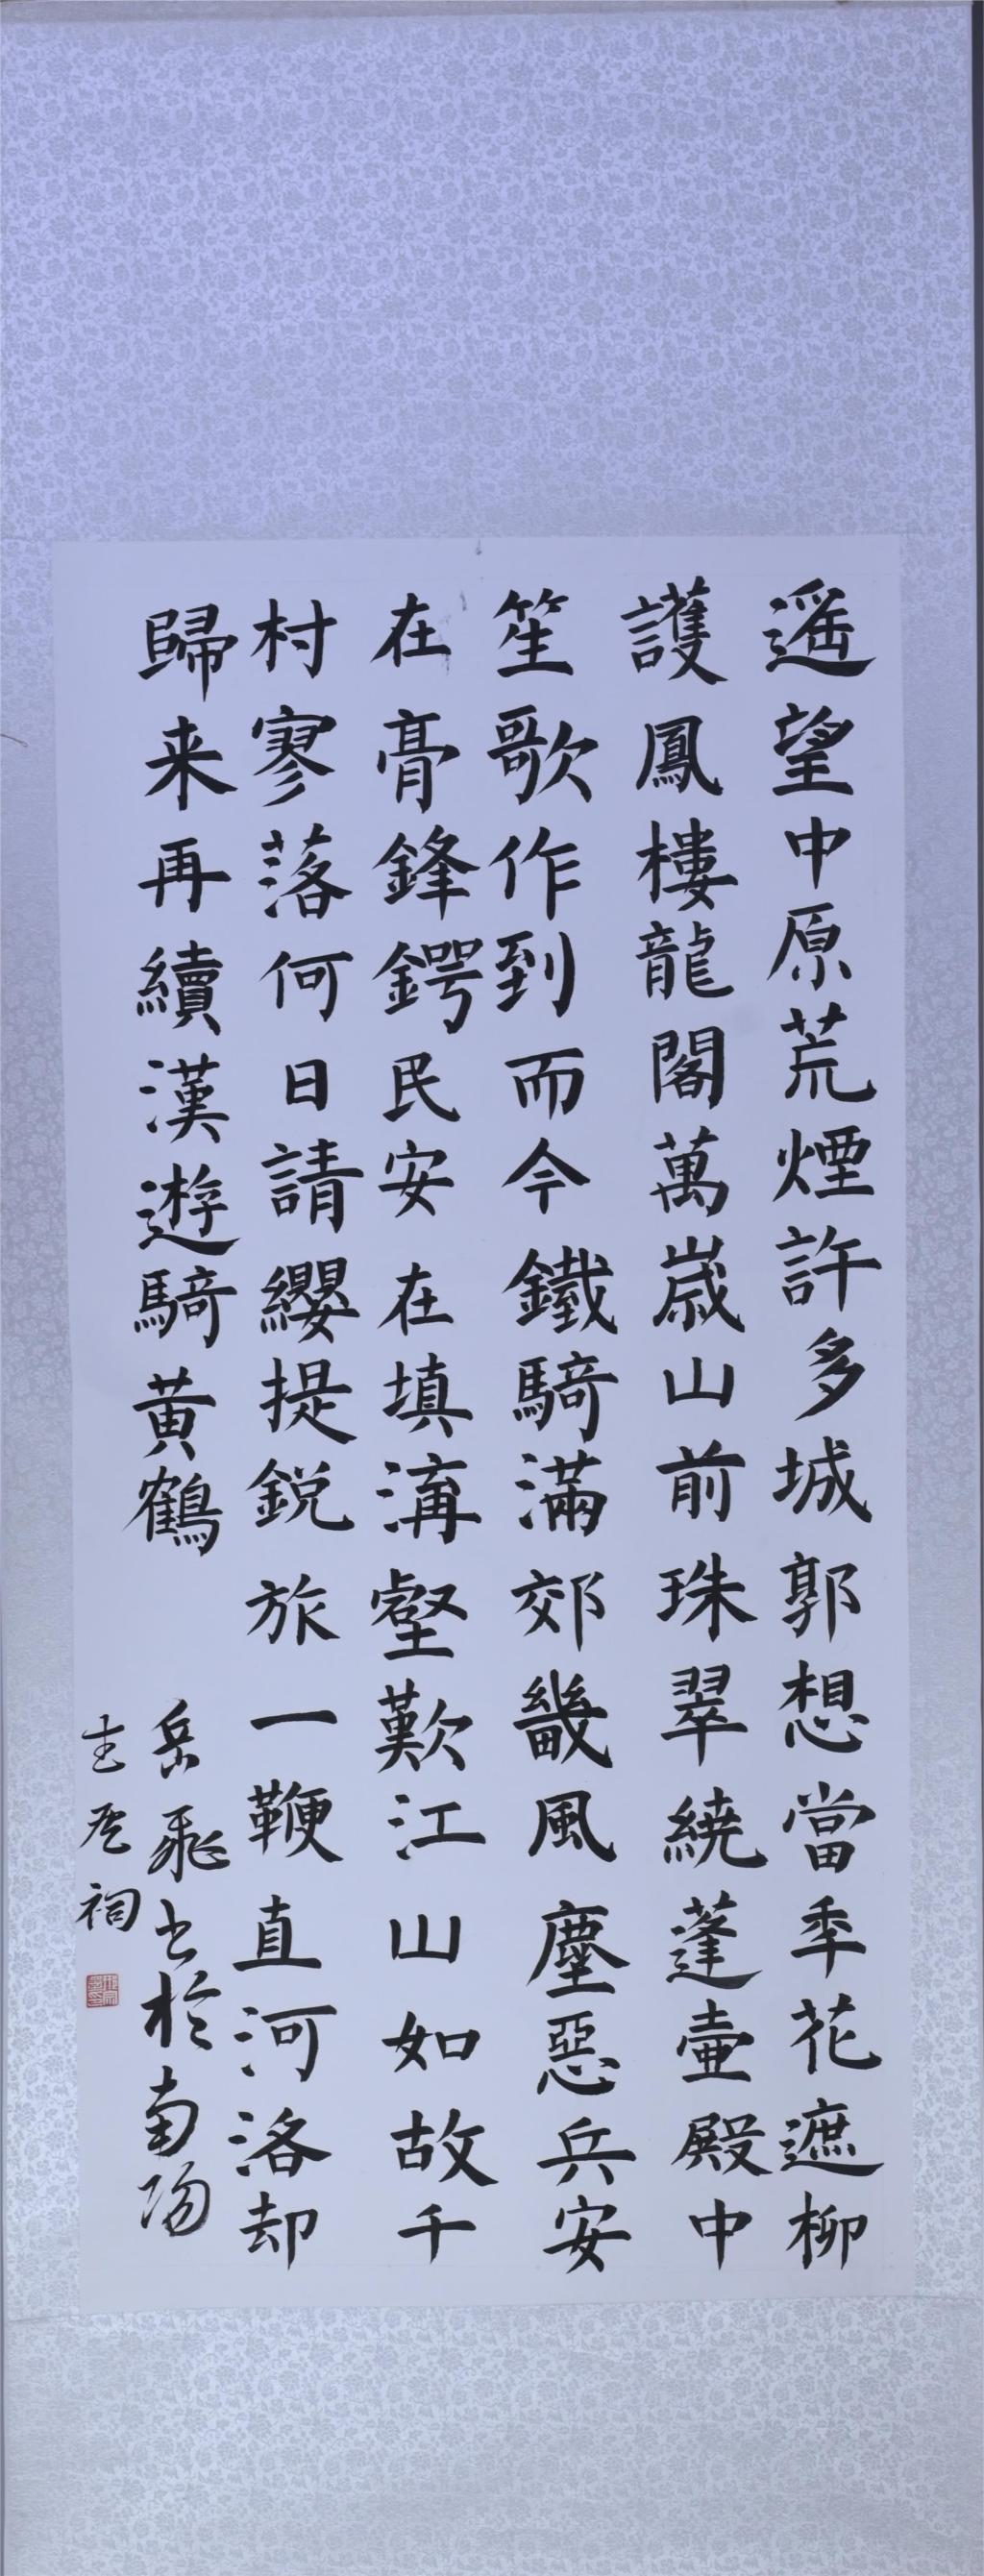 遥望中原荒煙許多城郭想當秊花遮柳
護鳳樓龍閣萬歲山前珠翠繞蓬壷殿中
笙歌作到而今鐵騎滿郊畿風塵惡兵安
在膏鋒鍔民安在填溝壑歎江山如故千
村寥落何日請纓提鋭旅一鞭直河洛却
歸来再續漢遊騎黄鶴
岳飛書於南陽
祠